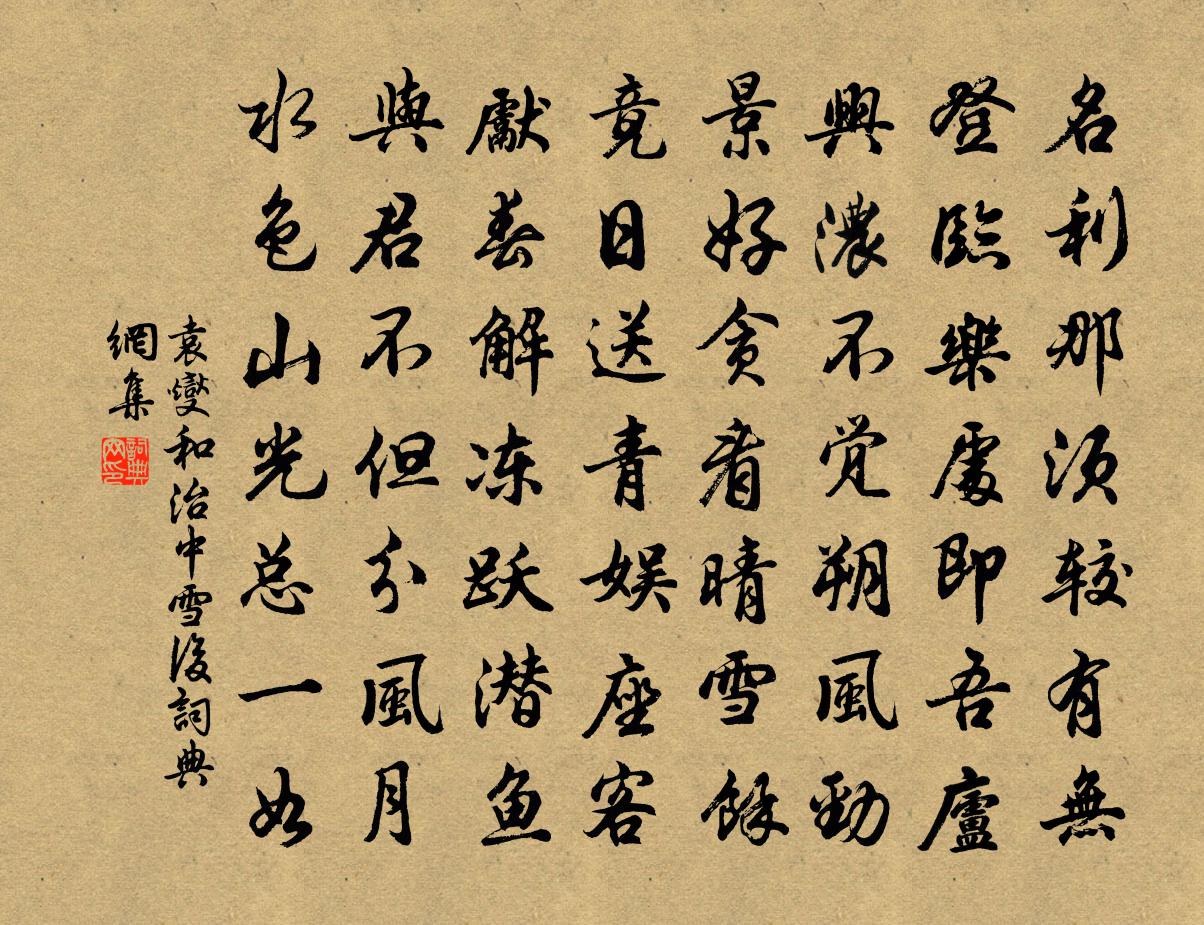 名利那须较有無
登臨樂處即吾廬
興濃不觉朔風勁
景好贪看晴雪餘
竟日送青娱座客
獻春解冻跃潜鱼
與君不但分風月
水色山光总一如
袁燮和治中雪後詞典
網集
詞典
网印